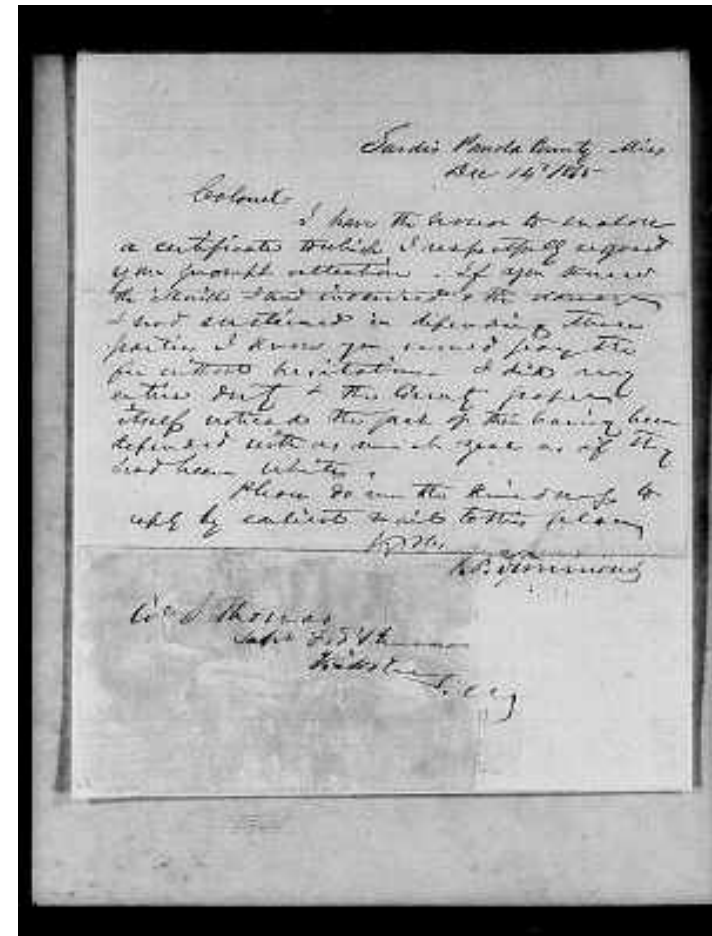 Sardis Panola County Miss
Dec 14th 1865
Colonel
I have the honor to enclose
a certificate to which I respectfully request
your prompt attention. if you knew
the I had incurred & the
I had sustained in defending these
parties I know you would pay the
fee without hesitation. I did my
entire duty & the County papers
itself noticed the fact of their having been
defended with as much zeal as if they
had been whites.
Please do me the kindness to
reply by earliest mail to this place
Thomas